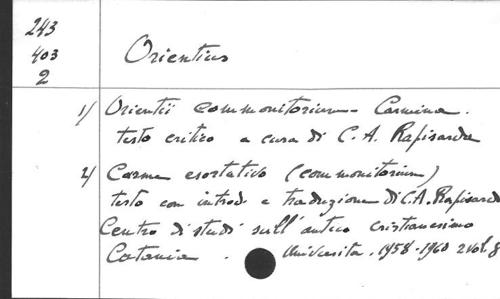 243
403
2
Orientius
1/ Orientii commonitorium - Carmina.
testo critico a cura di C. A. Rapisarda
2/ Carme esortativo (commonitorium)
testo con introd. e traduzione di C. A. Rapisarda
Centro di studi sull'antico cristianesimo
Catania. Università. 1958-1960 2 vol. 8